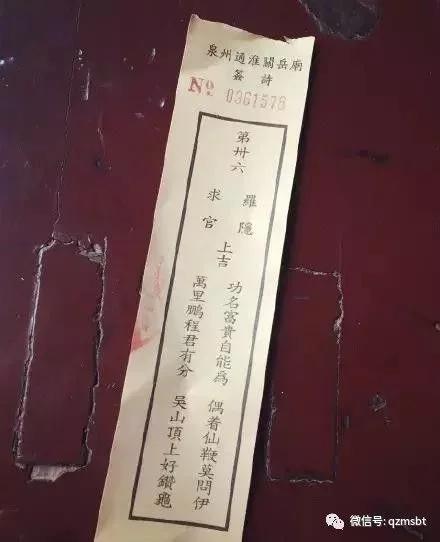 泉州通淮關岳廟
簽詩
No. 0361578
第卅六
羅隱
求官
上吉
功名富貴自能爲
偶着仙鞭莫問伊
萬里鵬程君有分
吳山頂上好鑽龜
微信号: qzmsbt